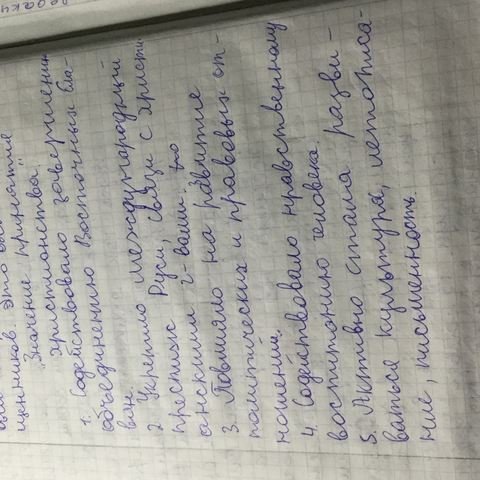 щенников. Это был
„Значение принятия
христианства".
1. Содействовало завершению
объединению восточных сла-
вян.
2. Укрепило международный
престиж Руси, связи с христи
анскими г-вами
3. Повлияло на развитие
политических и правовых от-
ношений.
4. Содействовало нравственному
воспитанию человека.
5. Активно стала разви-
ваться культура, летописа-
ние, письменность.